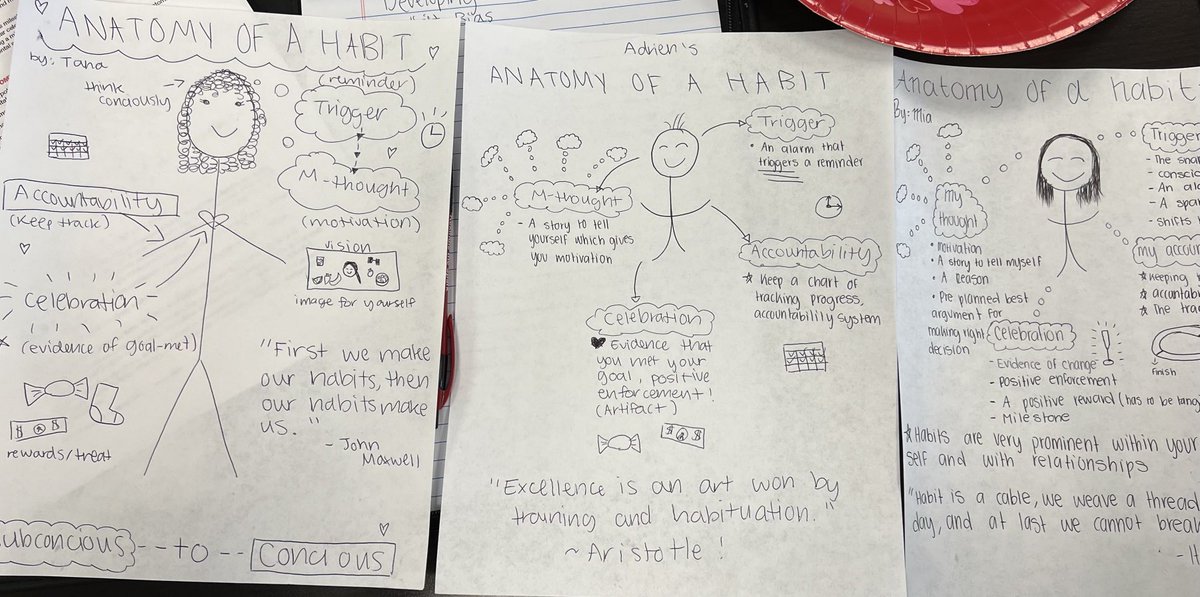 Developing
Bias
ANATOMY OF A HABIT
by: Tana
think
conciously
(reminder)
Trigger
M-thought
(motivation)
Accountability
(Keep track)
vision
image for yourself
Celebration
(evidence of goal-met)
rewards/treat
"First we make
our habits, then
our habits make
us."
- John
Maxwell
ubconcious -- to -- Concious
Adrien's
ANATOMY OF A HABIT
Trigger
• An alarm that
triggers a reminder
M-thought
- A story to tell
yourself which gives
you motivation
Accountability
Keep a chart of
tracking progress,
accountability system
Celebration
Evidence that
you met your
goal, positive
enforcement!
(Artifact)
"Excellence is an art won by
training and habituation."
~ Aristotle!
Anatomy of a habit
By: Mia
Trigger
- The
- consci
- An al
- A spa
- shifts
my
thought
• motivation
• A story to tell myself
• A Reason
• Pre planned best
argument for
making right
decision
my accou
keeping
accountab
the tra
Celebration
- Evidence of change
- positive enforcement
- A positive reward (has to be
- Milestone
finish
Habits are very prominent within your
self and with relationships
"Habit is a cable, we weave a thread
day, and at last we cannot break